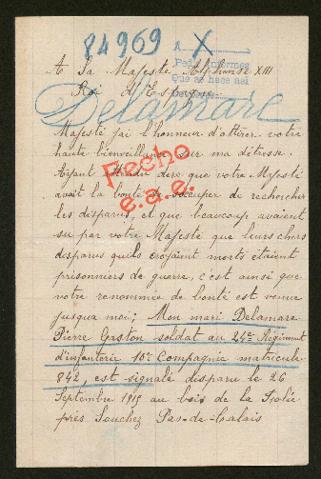 84969 A X
Pedi informes
Que se hace así
A Sa Majesté Alphonse XIII
Roi d'Espagne
Delamare
Majesté j'ai l'honneur d'attirer votre
haute bienveillance sur ma détresse.
Ayant entendu dire que votre Majesté
avait la bonté de s'occuper de rechercher
les disparus, et que beaucoup avaient
su par votre Majesté que leurs chers
disparus qu'ils croyaient morts étaient
prisonniers de guerre, c'est ainsi que
votre renommée de bonté est venue
jusqu'à moi; Mon mari Delamare
Pierre Gaston soldat au 24e Régiment
d'infanterie 10e Compagnie matricule
842, est signalé disparu le 26
Septembre 1915 au bois de la Folie
près Souchez Pas-de-Calais
Fecho
e.a.e.